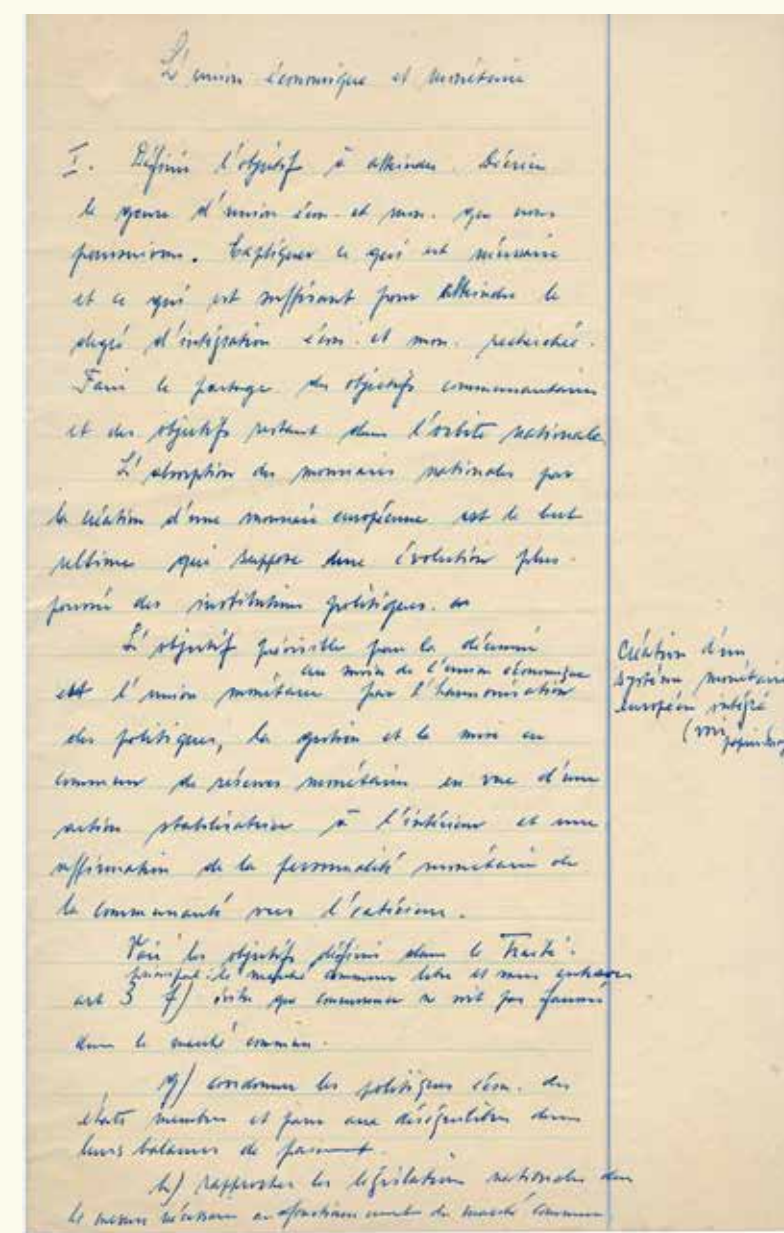 L'union économique et monétaire
I. Définir l'objectif à atteindre. Décrire
le genre d'union écon. et mon. que nous
poursuivons. Expliquer ce qui est nécessaire
et ce qui est suffisant pour atteindre le
degré d'intégration écon. et mon. recherchée.
Faire le partage des objectifs communautaires
et des objectifs restant dans l'orbite nationale
L'absorption des monnaies nationales par
la création d'une monnaie européenne est le but
ultime qui suppose une évolution plus
poussée des institutions politiques.
L'objectif prévisible pour la décennie
au moins de l'union économique
est l'union monétaire par l'harmonisation
des politiques, la gestion et la mise en
commun de réserves monétaires en vue d'une
action stabilisatrice à l'intérieur et une
affirmation de la personnalité monétaire de
la communauté vers l'extérieur.
Création d'un
système monétaire
européen intégré
(voir
Voir les objectifs définis dans le Traité.
principal: le marché commun libre et sans entraves
art 3 f) éviter que concurrence ne soit pas faussée
dans le marché commun.
g) coordonner les politiques écon. des
états membres et parer aux déséquilibres dans
leurs balances de paiement.
h) rapprocher les législations nationales dans
la mesure nécessaire au fonctionnement du marché commun